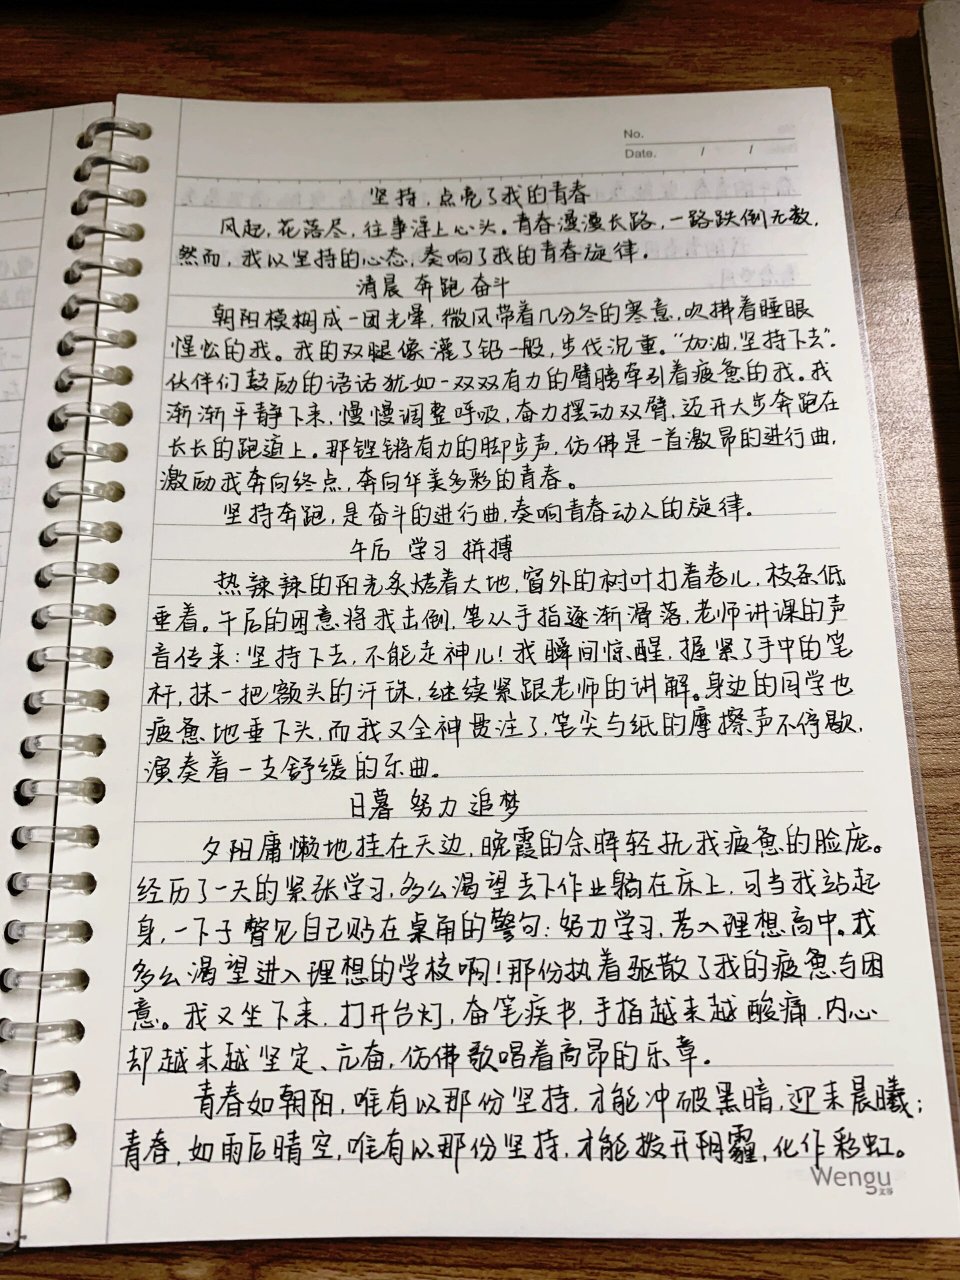 No.
Date. / /
坚持,点亮了我的青春
风起,花落尽,往事浮上心头。青春漫漫长路,一路跌倒无数,
然而,我以坚持的心态,奏响了我的青春旋律。
清晨 奔跑 奋斗
朝阳模糊成一团光晕,微风带着几分冬的寒意,吹拂着睡眼
惺忪的我。我的双腿像灌了铅一般,步伐沉重。“加油,坚持下去”.
伙伴们鼓励的话语犹如一双双有力的臂膀牵引着疲惫的我。我
渐渐平静下来,慢慢调整呼吸,奋力摆动双臂,迈开大步奔跑在
长长的跑道上。那铿锵有力的脚步声,仿佛是一首激昂的进行曲,
激励我奔向终点,奔向华美多彩的青春。
坚持奔跑,是奋斗的进行曲,奏响青春动人的旋律.
午后 学习 拼搏
热辣辣的阳光炙烤着大地,窗外的树叶打着卷儿,枝条低
垂着。午后的困意将我击倒,笔从手指逐渐滑落,老师讲课的声
音传来:坚持下去,不能走神儿!我瞬间惊醒,握紧了手中的笔
杆,抹一把额头的汗珠,继续紧跟老师的讲解。身边的同学也
疲惫地垂下头,而我又全神贯注了,笔尖与纸的摩擦声不停歇,
演奏着一支舒缓的乐曲。
日暮 努力 追梦
夕阳慵懒地挂在天边,晚霞的余晖轻抚我疲惫的脸庞。
经历了一天的紧张学习,多么渴望丢下作业躺在床上,可当我站起
身,一下子瞥见自己贴在桌角的警句:努力学习,考入理想高中。我
多么渴望进入理想的学校啊!那份执着驱散了我的疲惫与困
意。我又坐下来,打开台灯,奋笔疾书,手指越来越酸痛,内心
却越来越坚定、亢奋,仿佛歌唱着高昂的乐章。
青春如朝阳,唯有以那份坚持,才能冲破黑暗,迎来晨曦;
青春,如雨后晴空,唯有以那份坚持,才能拨开阴霾,化作彩虹。
Wengu